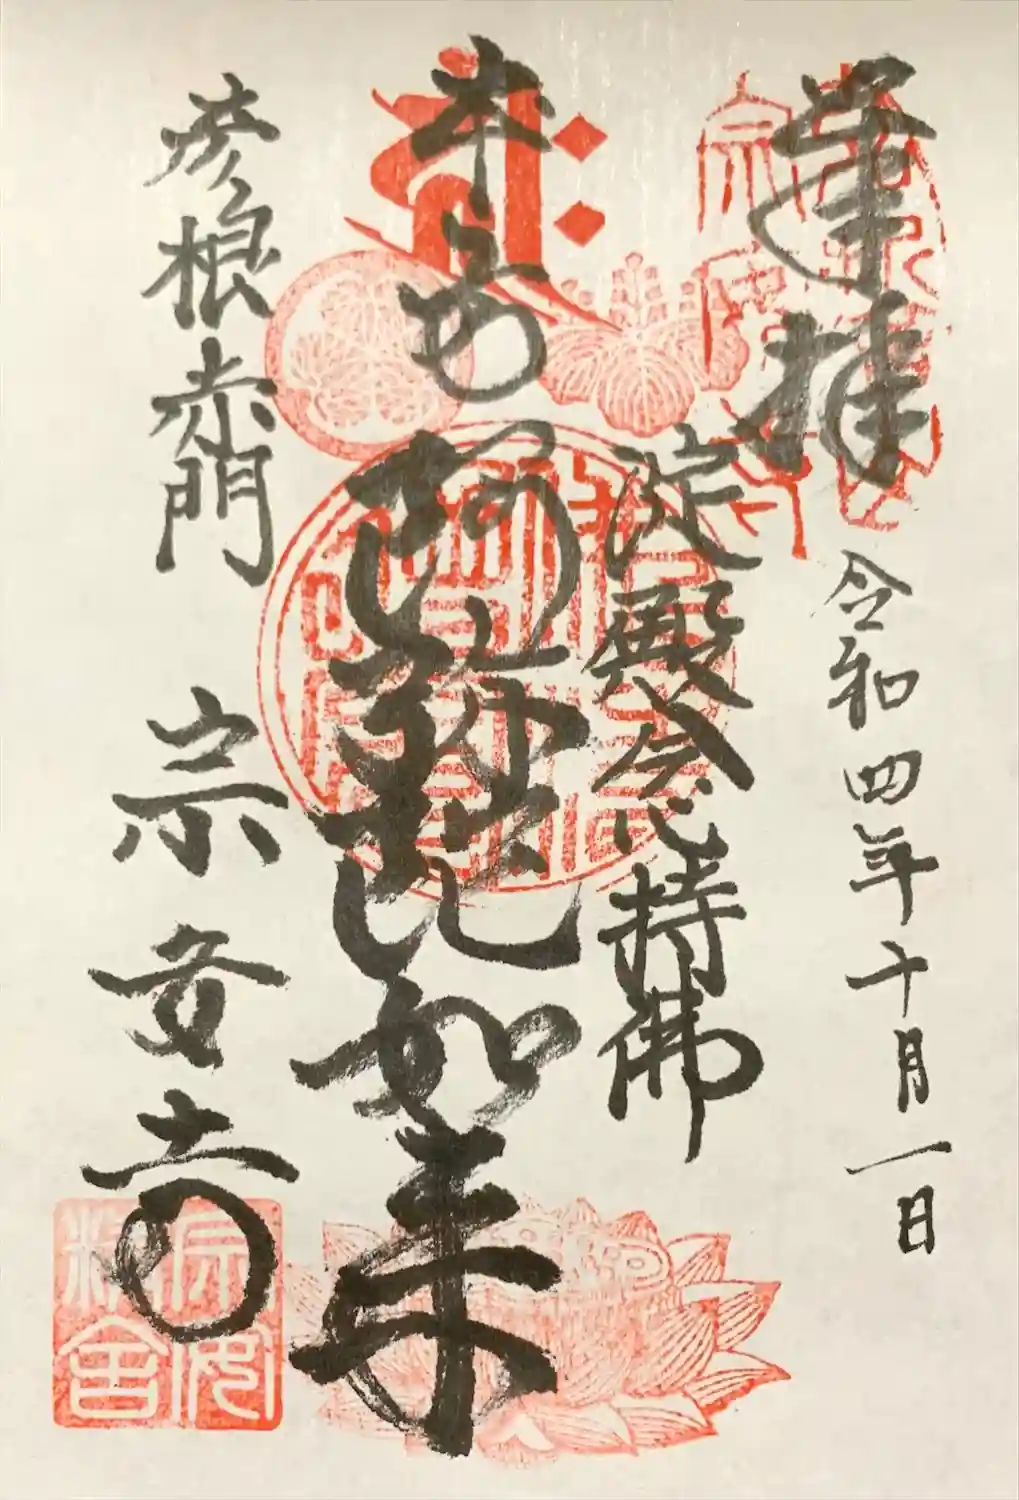 奉拝
令和四年十月一日
淀殿念持佛
本尊
阿弥陀如来
彦根赤門
宗安寺